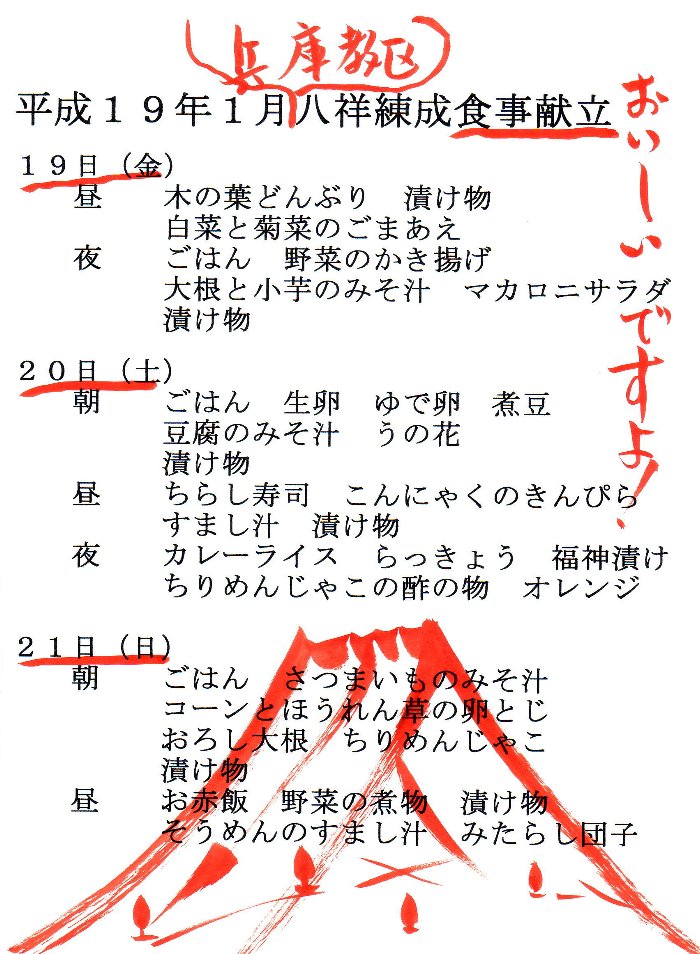 兵庫教区
平成１９年１月八祥練成食事献立
おいしいですよ！
１９日（金）
昼　木の葉どんぶり　漬け物
白菜と菊菜のごまあえ
夜　ごはん　野菜のかき揚げ
大根と小芋のみそ汁　マカロニサラダ
漬け物
２０日（土）
朝　ごはん　生卵　ゆで卵　煮豆
豆腐のみそ汁　うの花
漬け物
昼　ちらし寿司　こんにゃくのきんぴら
すまし汁　漬け物
夜　カレーライス　らっきょう　福神漬け
ちりめんじゃこの酢の物　オレンジ
２１日（日）
朝　ごはん　さつまいものみそ汁
コーンとほうれん草の卵とじ
おろし大根　ちりめんじゃこ
漬け物
昼　お赤飯　野菜の煮物　漬け物
そうめんのすまし汁　みたらし団子